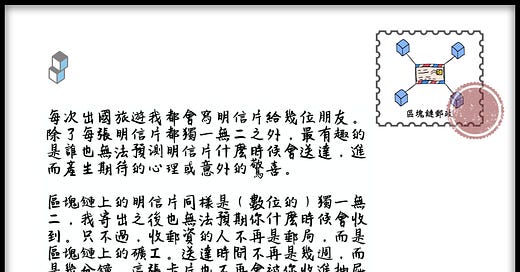 區塊鏈郵政
每次出國旅遊我都會寫明信片給幾位朋友。
除了每張明信片都獨一無二之外，最有趣的
是誰也無法預測明信片什麼時候會送達，進
而產生期待的心理或意外的驚喜。
區塊鏈上的明信片同樣是（數位的）獨一無
二，我寄出之後也無法預期你什麼時候會收
到。只不過，收郵資的人不再是郵局，而是
區塊鏈上的礦工。送達時間不再是幾週，而
是幾分鐘。這張卡片也不再會被你收進抽屜